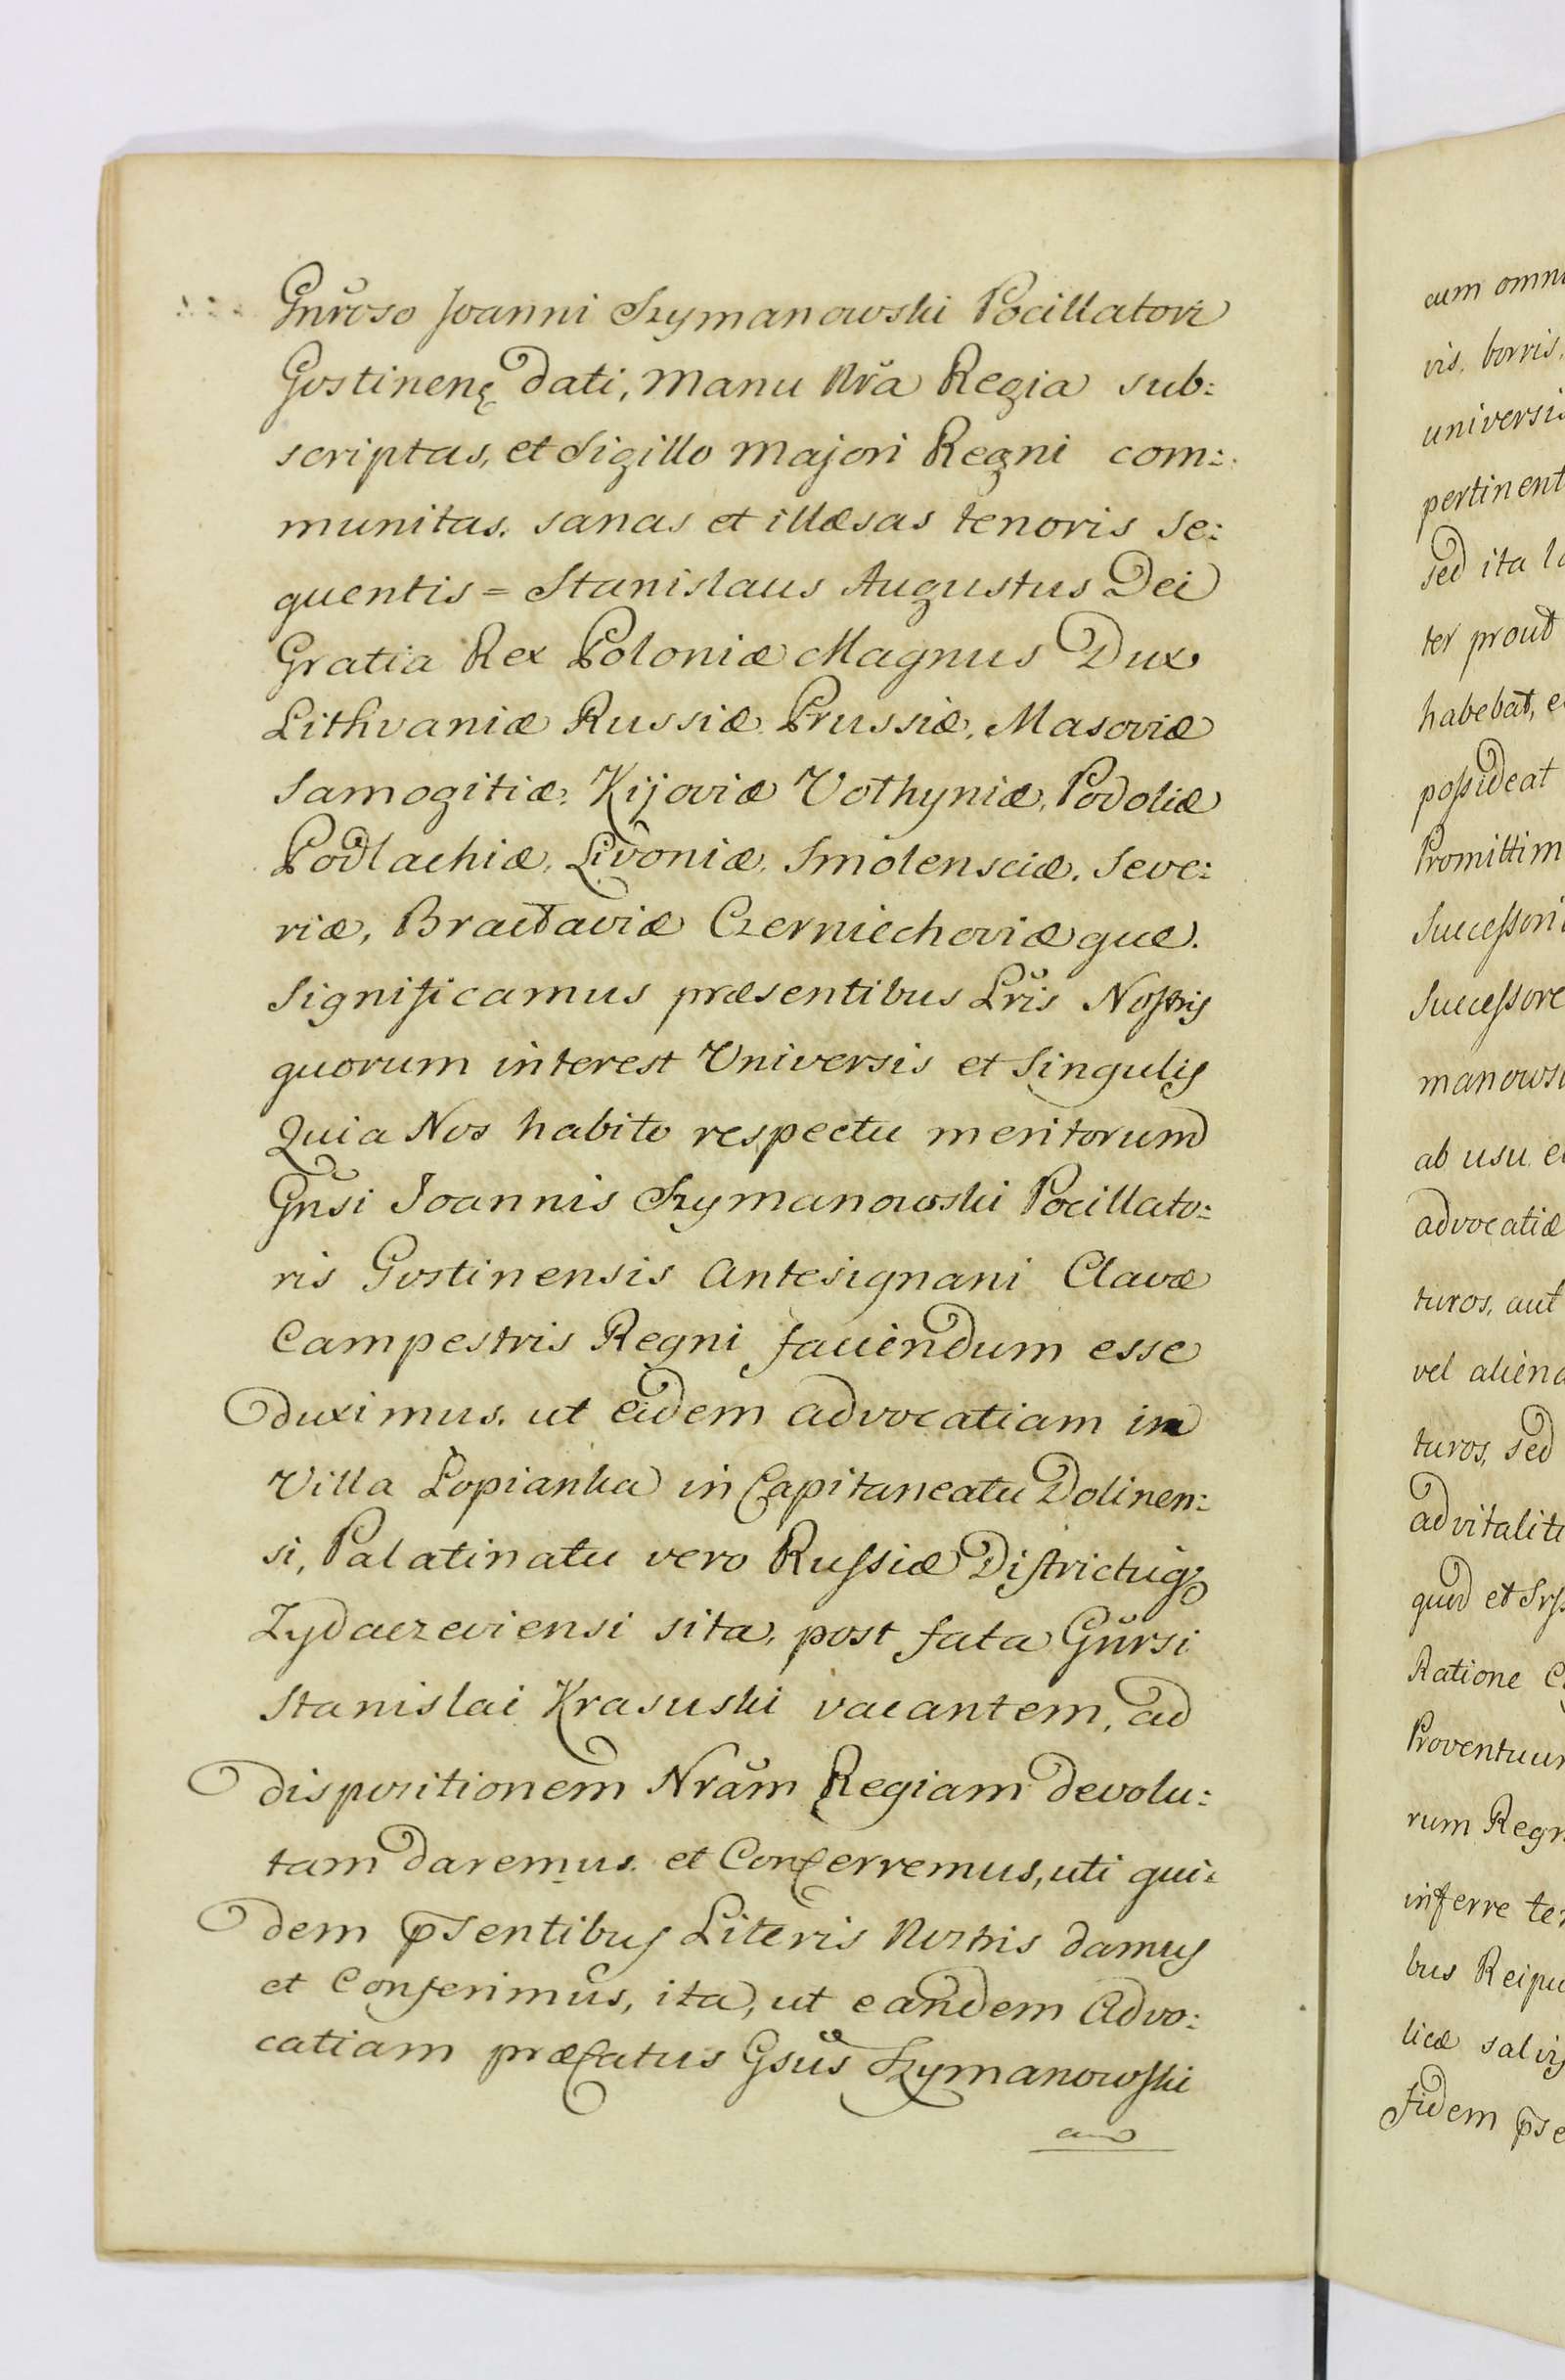 Gnroso Joanni Szymanowski Pocillatori
Gostinenę dati, manu Nr̃a Regia sub:
scriptas, et Sigillo Majori Regni com:
munitas. sanas et illæsas tenoris se:
quentis = Stanislaus Augustus Dei
Gratia Rex Poloniæ Magnus Dux
Lithvaniæ Russiæ Prussiæ, Masoviæ
Samogitiæ, Kijoviæ Volhyniæ, Podoliæ
Podlachiæ, Livoniæ, Smolensciæ. Seve:
riæ, Braclaviæ Czerniechoviæque.
Significamus præsentibus Lr̃is Nostris
quorum interest Universis et Singulis
Quia Nos habito respectu meritorum
Gñsi Joannis Szymanowski Pocillato:
ris Gostinensis Antesignani Clavæ
Campestris Regni favendum esse
duximus. ut eidem advocatiam in
Villa Lopianka in Capitaneatu Dolinen:
si, Palatinatu vero Russiæ Districtuq3
Zydaczeviensi sita, post fata Gñrsi
Stanislai Krasuski vacantem, ad
dispositionem Nr̃am Regiam devolu:
tam daremus et Conferremus, uti qui:
dem p̃sentibus Literis Nostris damus
et Conferimus, ita, ut eandem Advo:
catiam præfatus Gsũs Szymanowski
cum omni
vis, borris,
universis
pertinent
sed ita la
ter prout
habebat, e
possideat
Promittim
Successori
Successore
manows
ab usu e
advocatiæ
turos, aut
vel aliena
turos, sed
advitalit
quod et
Ratione C
Proventuum
rum Regn
inferre te
bus Reipu
licæ salvis
Fidem p̃se